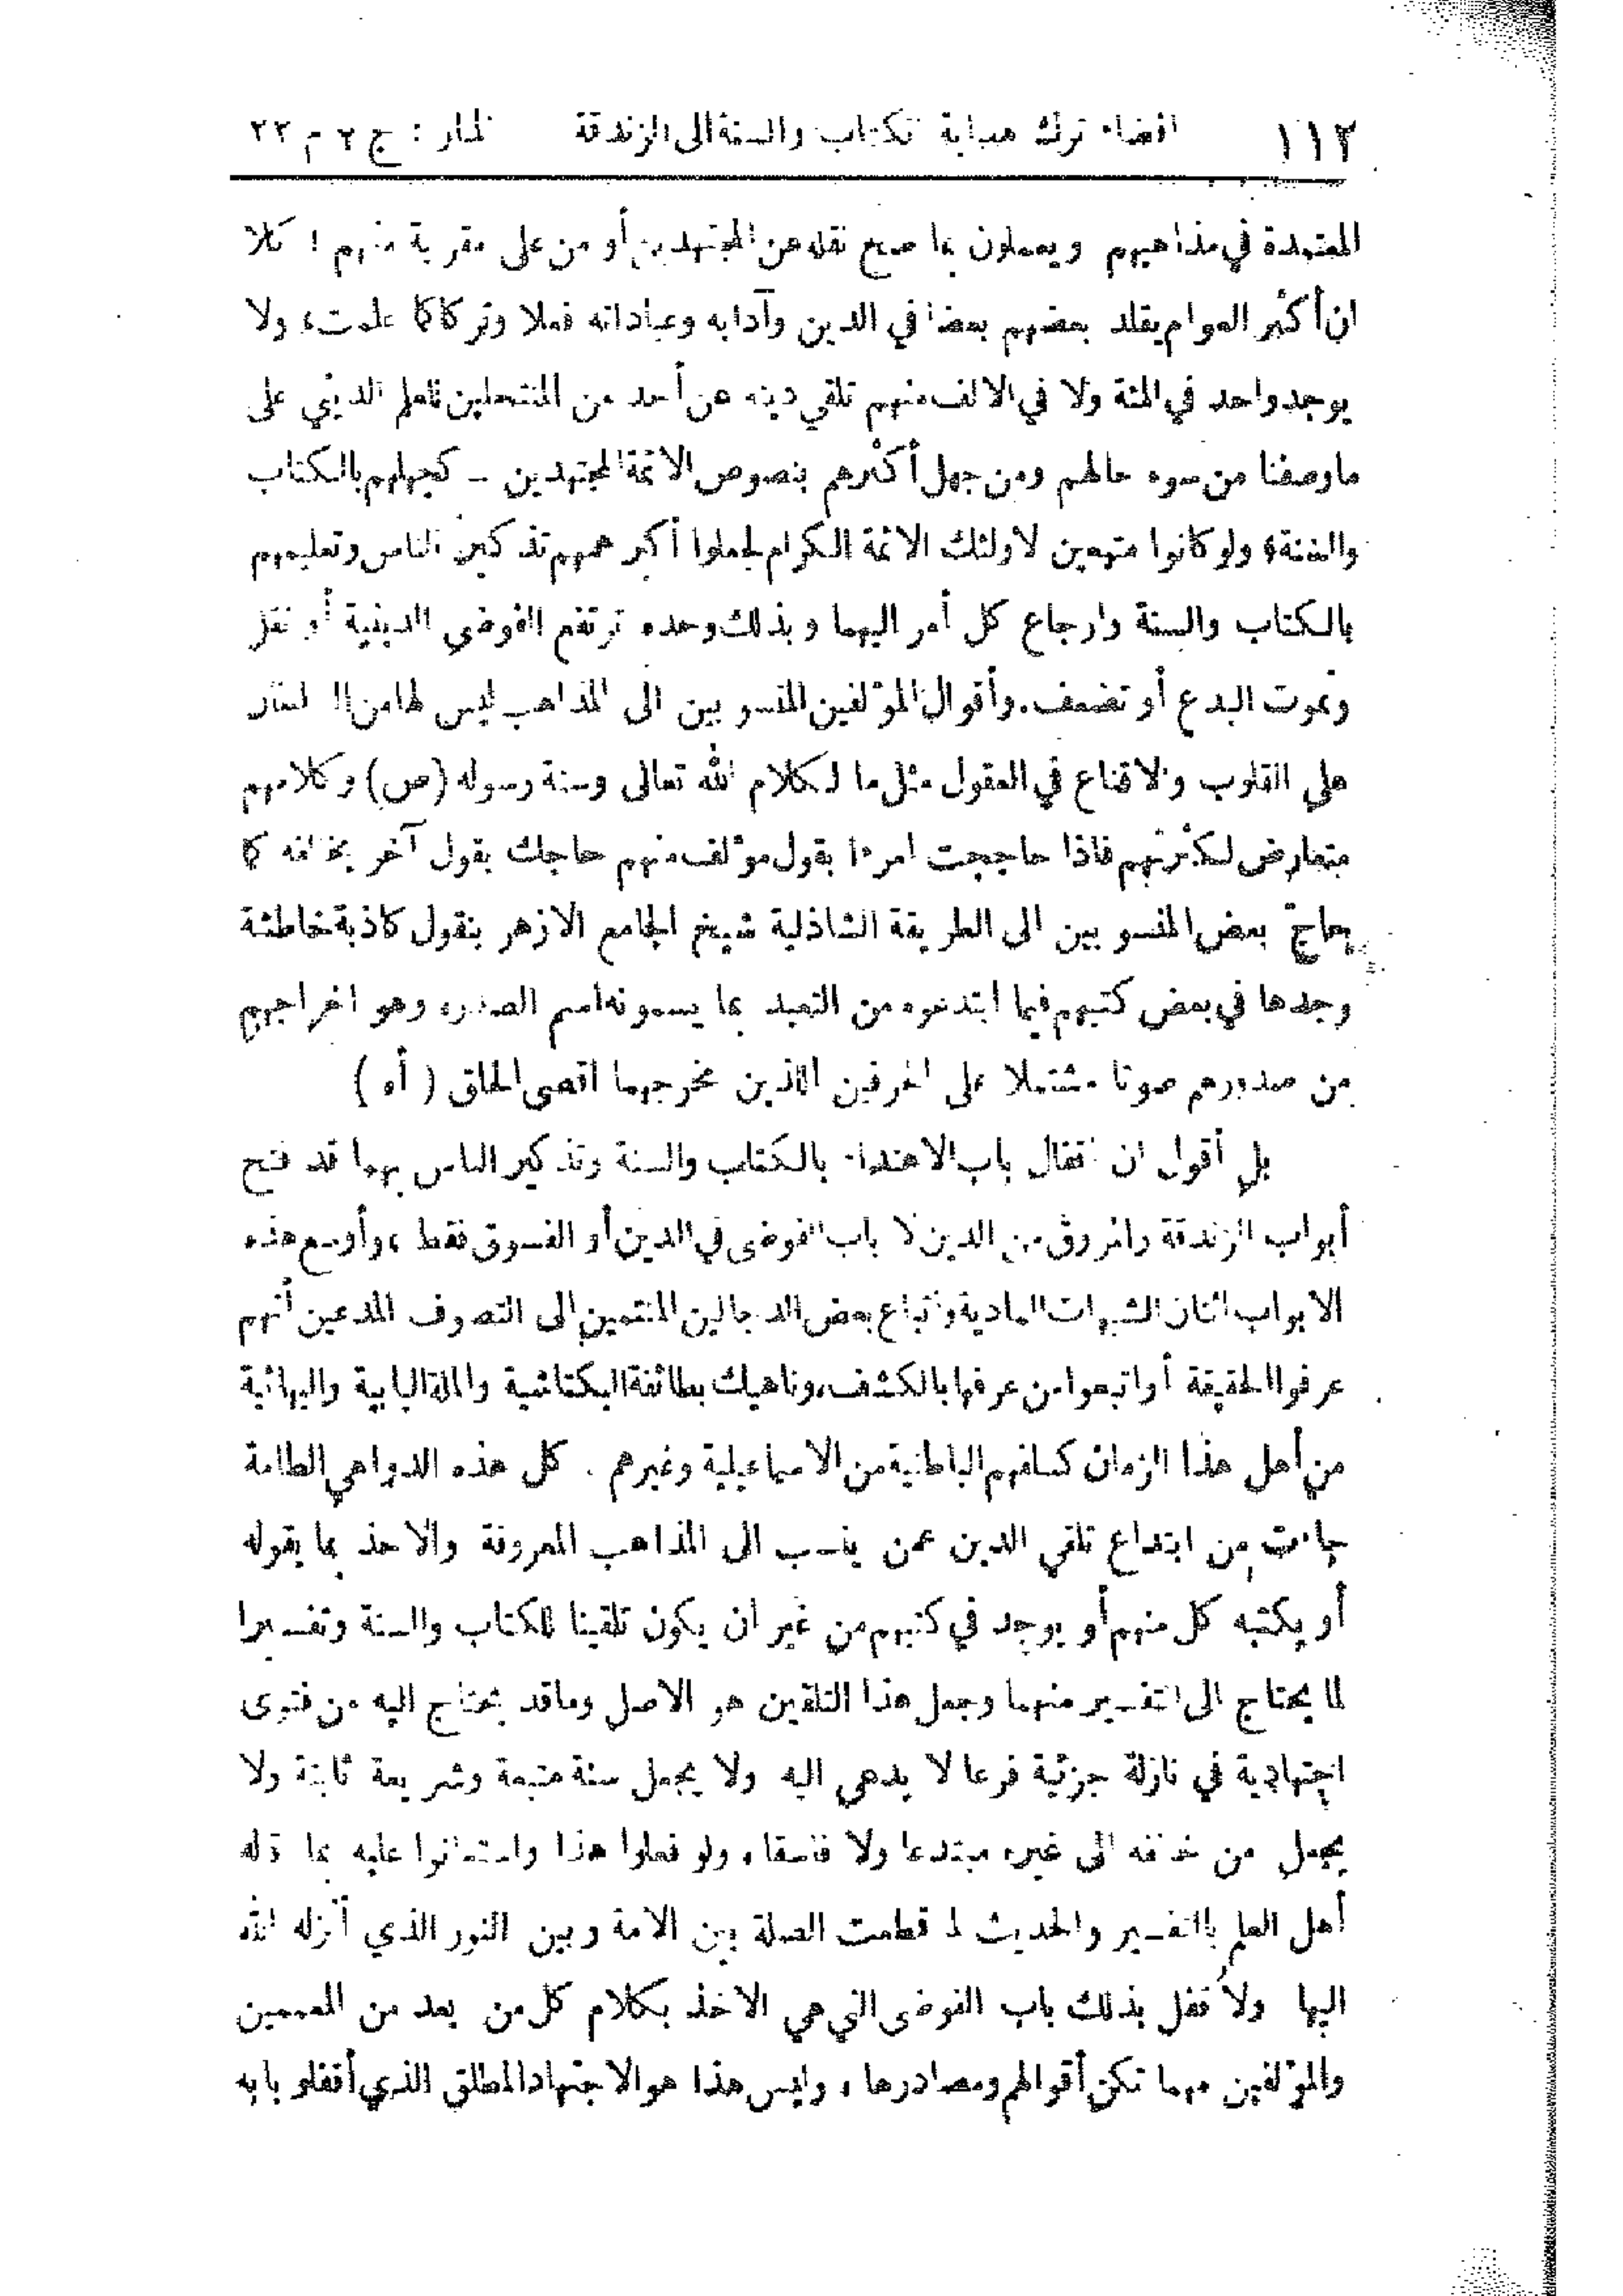 ١١٢ افضاء ترك هداية الكتاب والسنة الى الزندقة المنار : ج ٢ م ٢٢
المعتمدة في مذاهبهم ويعملون بما صح نقله عن المجتهدين أو من على مقربة منهم ! كلا
ان أكثر العوام يقلد بعضهم بعضا في الدين وآدابه وعباداته فعلا وتركا كما علمت، ولا
يوجد واحد في المئة ولا في الالف منهم تلقي دينه عن أحد من المنتحلين للعلم الديني على
ما وصفنا من سوء حالهم ومن جهل أكثرهم بنصوص الائمة المجتهدين ــ كجهلهم بالكتاب
والسنة، ولو كانوا متبعين لاولئك الائمة الكرام لجعلوا أكبر همهم تذكير الناس وتعليمهم
بالكتاب والسنة وارجاع كل أمر اليهما وبذلك وحده ترتفع الفوضى الدينية أو تقل
وتموت البدع أو تضعف. وأقوال المؤلفين المنسوبين الى المذاهب ليس لها من السلطان
على القلوب والاقناع في العقول مثل ما لكلام الله تعالى وسنة رسوله (ص) وكلامهم
متعارض لكثرتهم فاذا حاججت امرءا بقول مؤلف منهم حاجك بقول آخر يخالفه كما
يحاج بعض المنسوبين الى الطريقة الشاذلية شيخ الجامع الازهر بنقول كاذبة خاطئة
وجدها في بعض كتبهم فيما ابتدعوه من التعبد بما يسمونه اسم الصدر، وهو اخراجهم
من صدورهم صوتا مشتملا على الحرفين اللذين مخرجهما اقصى الحلق ( أه )
بل أقول ان اقفال باب الاهتداء بالكتاب والسنة وتذكير الناس بهما قد فتح
أبواب الزندقة والمروق من الدين لا باب الفوضى في الدين أو الفسوق فقط ، وأوسع هذه
الابواب اثنان الشبهات المادية واتباع بعض الدجالين المنتمين إلى التصوف المدعين أنهم
عرفوا الحقيقة أو اتبعوا من عرفها بالكشف، وناهيك بطائفة البكتاشية والملة البابية والبهائية
من أهل هذا الزمان كسلفهم الباطنية من الاسماعيلية وغيرهم . كل هذه الدواهي الطامة
جاءت من ابتداع تلقي الدين عمن ينسب الى المذاهب المعروفة والاخذ بما يقوله
أو يكتبه كل منهم أو يوجد في كتبهم من غير ان يكون تلقينا للكتاب والسنة وتفسيرا
لما يحتاج الى التفسير منهما وجعل هذا التلقين هو الاصل وما قد يحتاج اليه من فتوى
اجتهادية في نازلة جزئية فرعا لا يدعى اليه ولا يجعل سنة متبعة وشريعة ثابتة ولا
يجعل من خالفه الى غيره مبتدعا ولا فاسقا، ولو فعلوا هذا واستعانوا عليه بما قاله
أهل العلم بالتفسير والحديث لما قطعت الصلة بين الامة وبين النور الذي أنزله الله
اليها ولأقفل بذلك باب الفوضى التي هي الاخذ بكلام كل من يعد من المعممين
والمؤلفين مهما تكن أقوالهم ومصادرها ، وليس هذا هو الاجتهاد المطلق الذي أقفلوا بابه